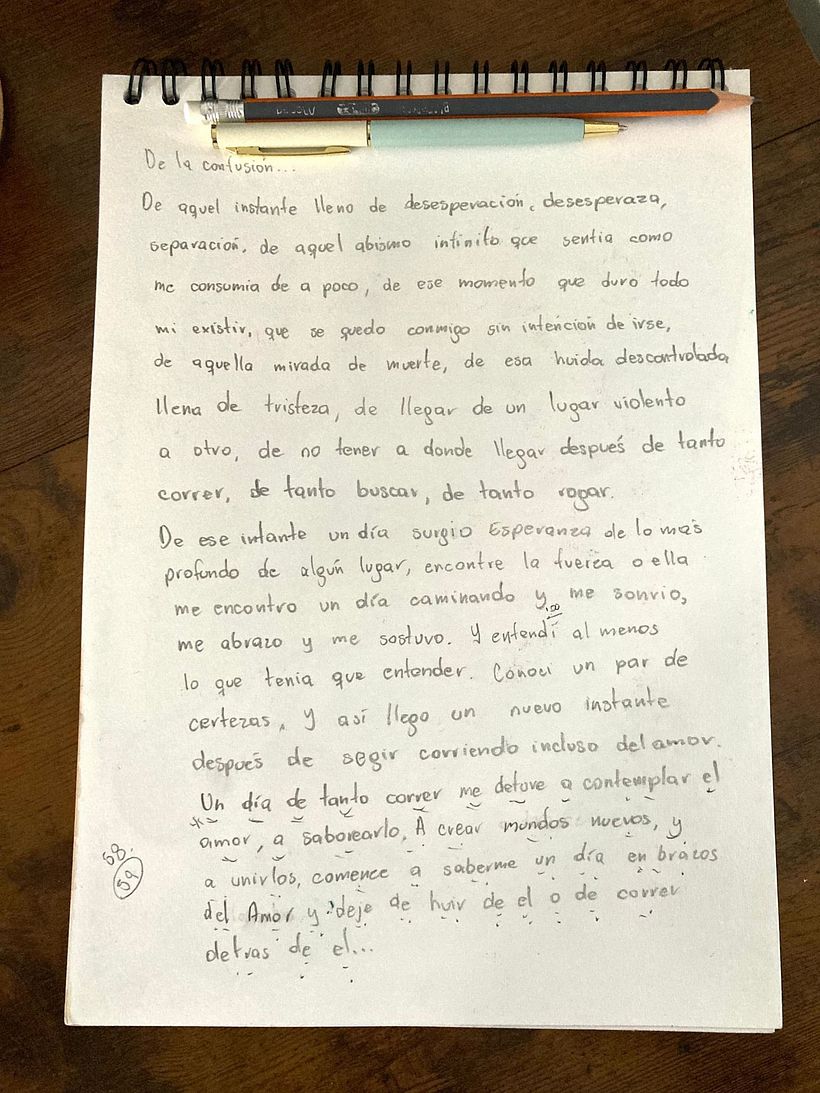 De la confusión...
De aquel instante lleno de desesperación, desesperaza,
separación, de aquel abismo infinito que sentia como
me consumia de a poco, de ese momento que duro todo
mi existir, que se quedo conmigo sin intención de irse,
de aquella mirada de muerte, de esa huida descontrolada
llena de tristeza, de llegar de un lugar violento
a otro, de no tener a donde llegar después de tanto
correr, de tanto buscar, de tanto rogar.
De ese intante un día surgio Esperanza de lo más
profundo de algún lugar, encontre la fuerza o ella
me encontro un día caminando y me sonrio,
me abrazo y me sostuvo. Y entendí al menos
lo que tenia que entender. Conoci un par de
certezas, y así llego un nuevo instante
después de segir corriendo incluso del amor.
Un día de tanto correr me detuve a contemplar el
amor, a saborearlo, A crear mundos nuevos, y
a unirlos, comence a saberme un día en brazos
del Amor y deje de huir de el o de correr
detras de el...
58.
59